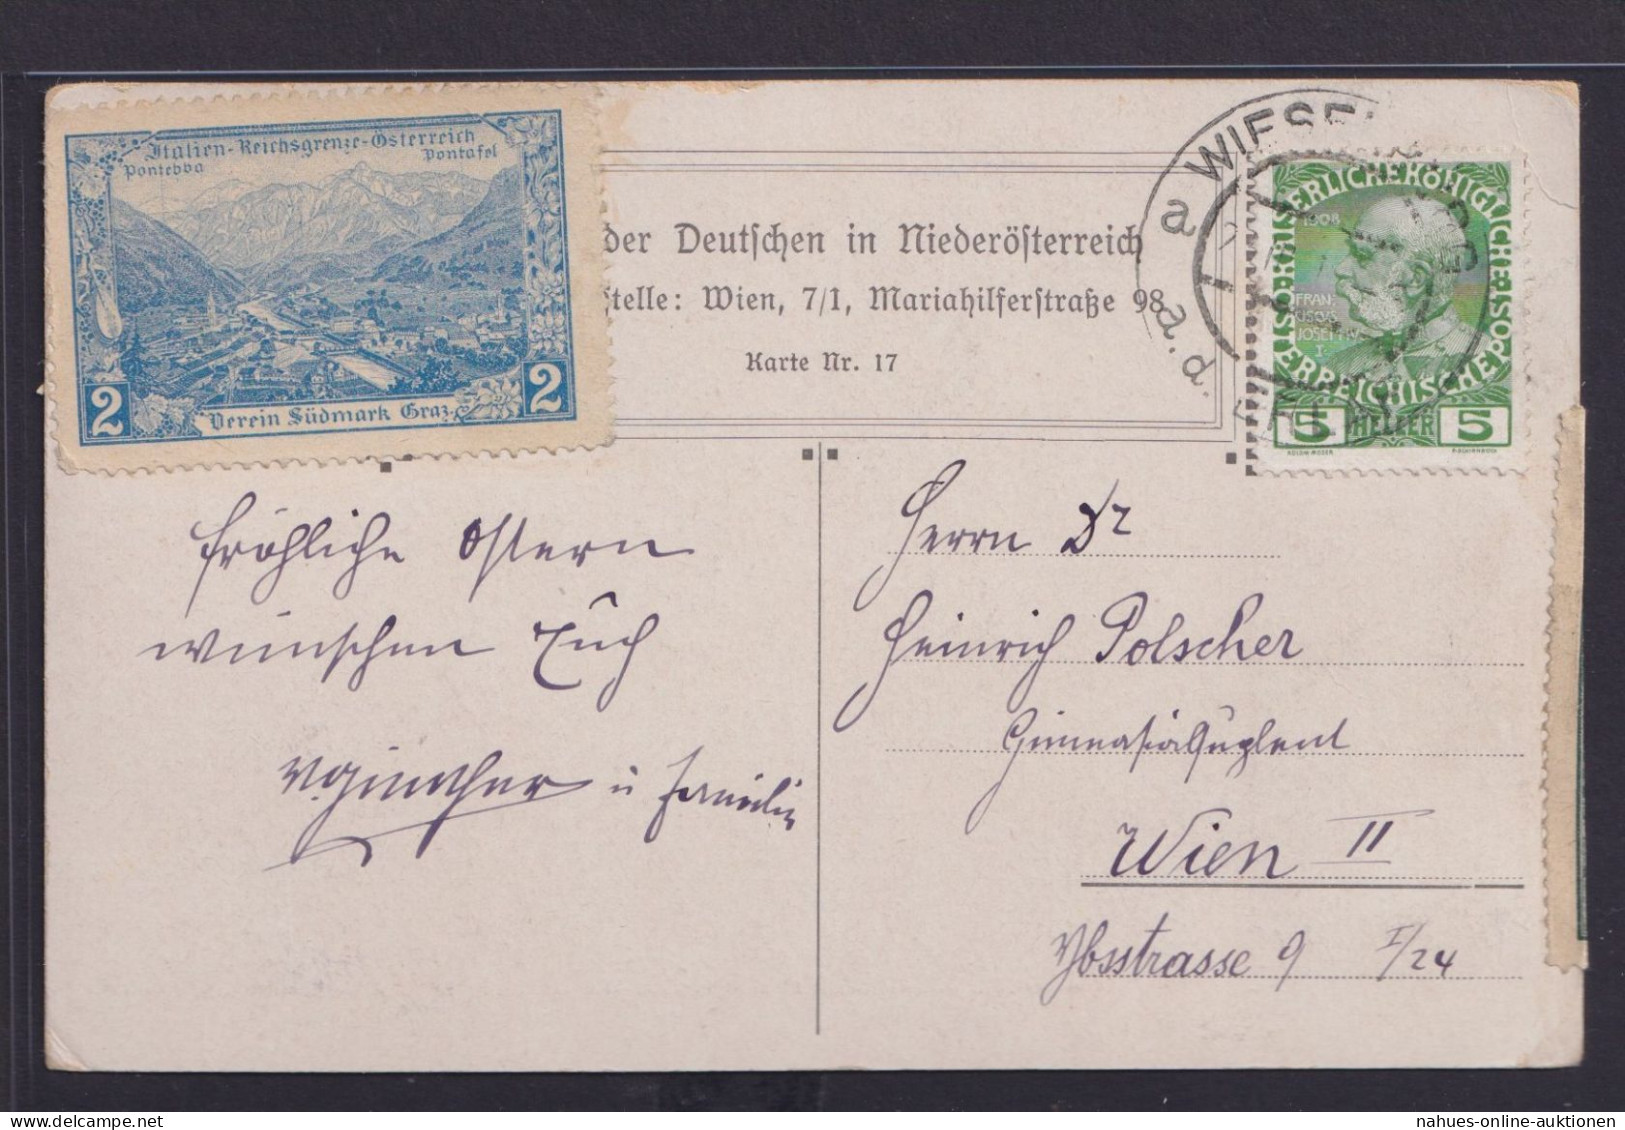 Italien-Reichsgrenze-Österreich
Pontebba
Pontafel
2
2
Verein Südmark Graz
der Deutschen in Niederösterreich
stelle: Wien, 7/1, Mariahilferstraße 98
Karte Nr. 17
a WIESE
a. d.
KAISERLICHE KÖNIGLICHE
ÖSTERREICHISCHE POST
1908
FRAN
JOSEPH
I.
5 HELLER 5
fröhliche Ostern
wünschen Euch
u Familie
Herrn Dr
Heinrich Polscher
Gimnasialsuplent
Wien II
Ybsstrasse 9 I/24
nahues-online-auktionen